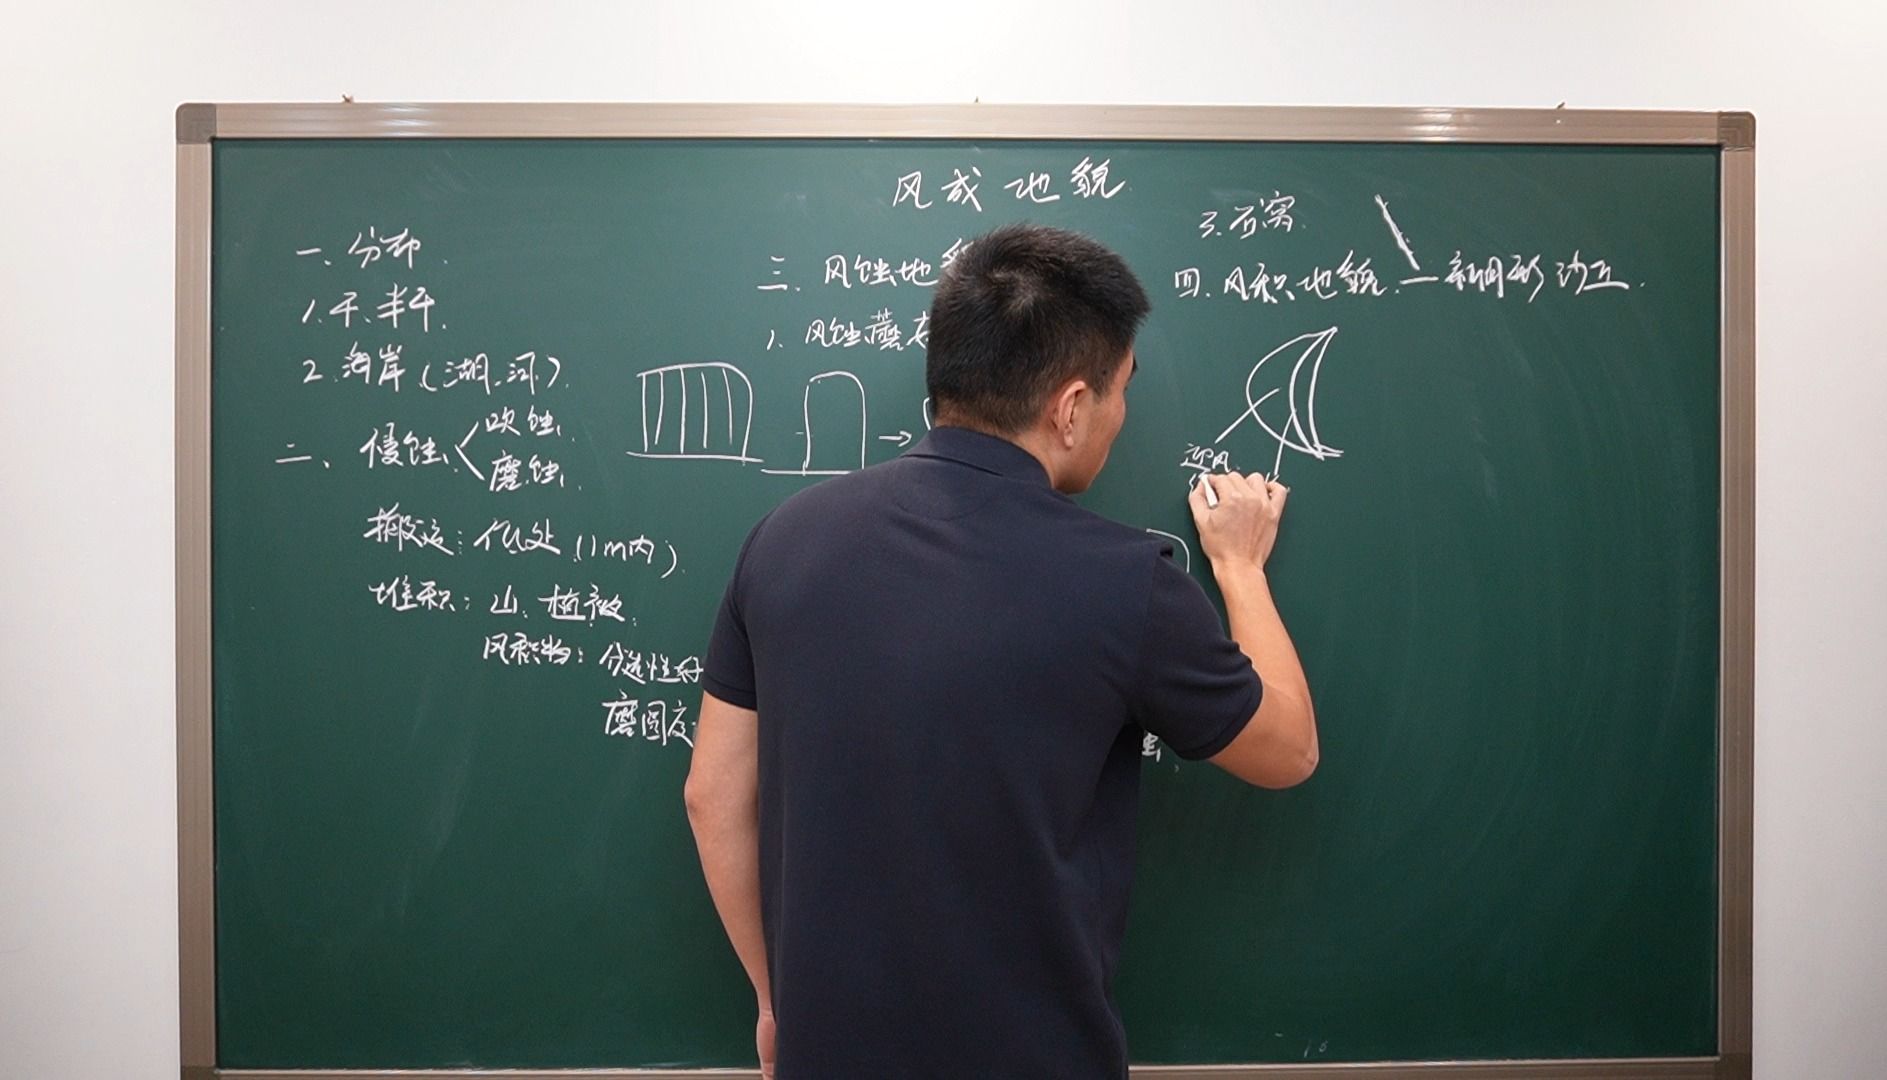 风成地貌
一、分布
1.干、半干
2.海岸(湖、河)
二、侵蚀
吹蚀
磨蚀
搬运:低处(1m内)
堆积:山、植被
风积物:分选性好
磨圆度
三、风蚀地
1、风蚀蘑
3.石窝
四、风积地貌—新月形沙丘
迎风